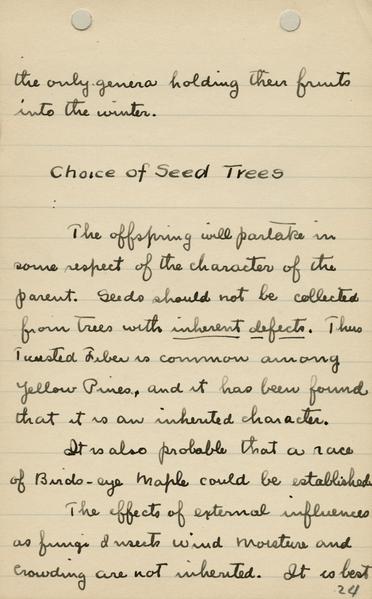 the only genera holding their fruits
into the winter.
Choice of Seed Trees
The offspring will partake in
some respect of the character of the
parent. Seeds should not be collected
from trees with inherent defects. Thus
Twisted Fiber is common among
Yellow Pines, and it has been found
that it is an inherited character.
It is also probable that a race
of Birds-eye Maple could be established
The effects of external influences
as fungi Insects Wind Moisture and
Crowding are not inherited. It is best
24